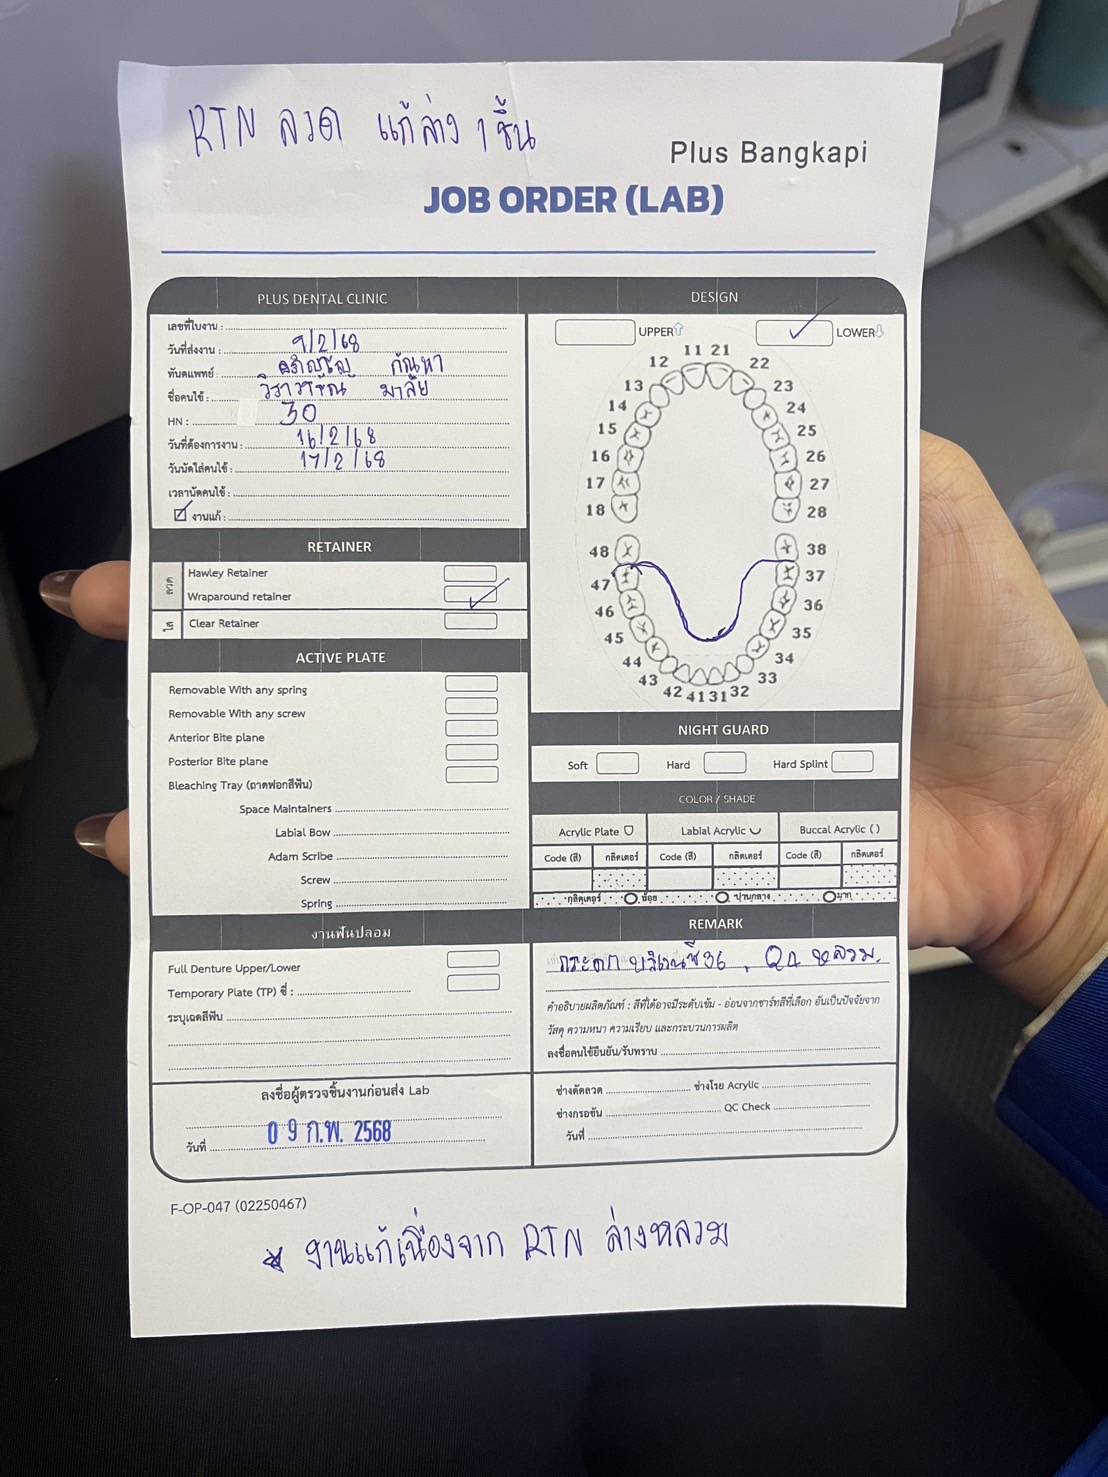 RTN ลวด แก้ล่าง 1 ชิ้น
Plus Bangkapi
JOB ORDER (LAB)
PLUS DENTAL CLINIC
เลขที่ใบงาน :
วันที่ส่งงาน : 9/2/68
ทันตแพทย์ : กัณหา
ชื่อคนไข้ : มาลัย
HN : 30
วันที่ต้องการงาน : 16/2/68
วันนัดใส่คนไข้ : 17/2/68
เวลานัดคนไข้ :
งานแก้ :
RETAINER
ลวด
Hawley Retainer
Wraparound retainer
ใส
Clear Retainer
ACTIVE PLATE
Removable With any spring
Removable With any screw
Anterior Bite plane
Posterior Bite plane
Bleaching Tray (ถาดฟอกสีฟัน)
Space Maintainers
Labial Bow
Adam Scribe
Screw
Spring
งานฟันปลอม
Full Denture Upper/Lower
Temporary Plate (TP) ซี่ :
ระบุเฉดสีฟัน
ลงชื่อผู้ตรวจชิ้นงานก่อนส่ง Lab
วันที่ 09 ก.พ. 2568
DESIGN
UPPER
LOWER
11 21
12 22
13 23
14 24
15 25
16 26
17 27
18 28
48 38
47 37
46 36
45 35
44 34
43 33
42 41 31 32
NIGHT GUARD
Soft Hard Hard Splint
COLOR / SHADE
Acrylic Plate Labial Acrylic Buccal Acrylic ( )
Code (สี) กลิตเตอร์ Code (สี) กลิตเตอร์ Code (สี) กลิตเตอร์
กลิตเตอร์ น้อย ปานกลาง มาก
REMARK
กระดก บริเวณซี่ 36 , หลวม.
คำอธิบายผลิตภัณฑ์ : สีที่ได้อาจมีระดับเข้ม - อ่อนจากชาร์ทสีที่เลือก อันเป็นปัจจัยจาก
วัสดุ ความหนา ความเรียบ และกระบวนการผลิต
ลงชื่อคนไข้ยืนยัน/รับทราบ
ช่างดัดลวด ช่างโรย Acrylic
ช่างกรอขัน QC Check
วันที่
F-OP-047 (02250467)
* งานแก้เนื่องจาก RTN ล่างหลวม